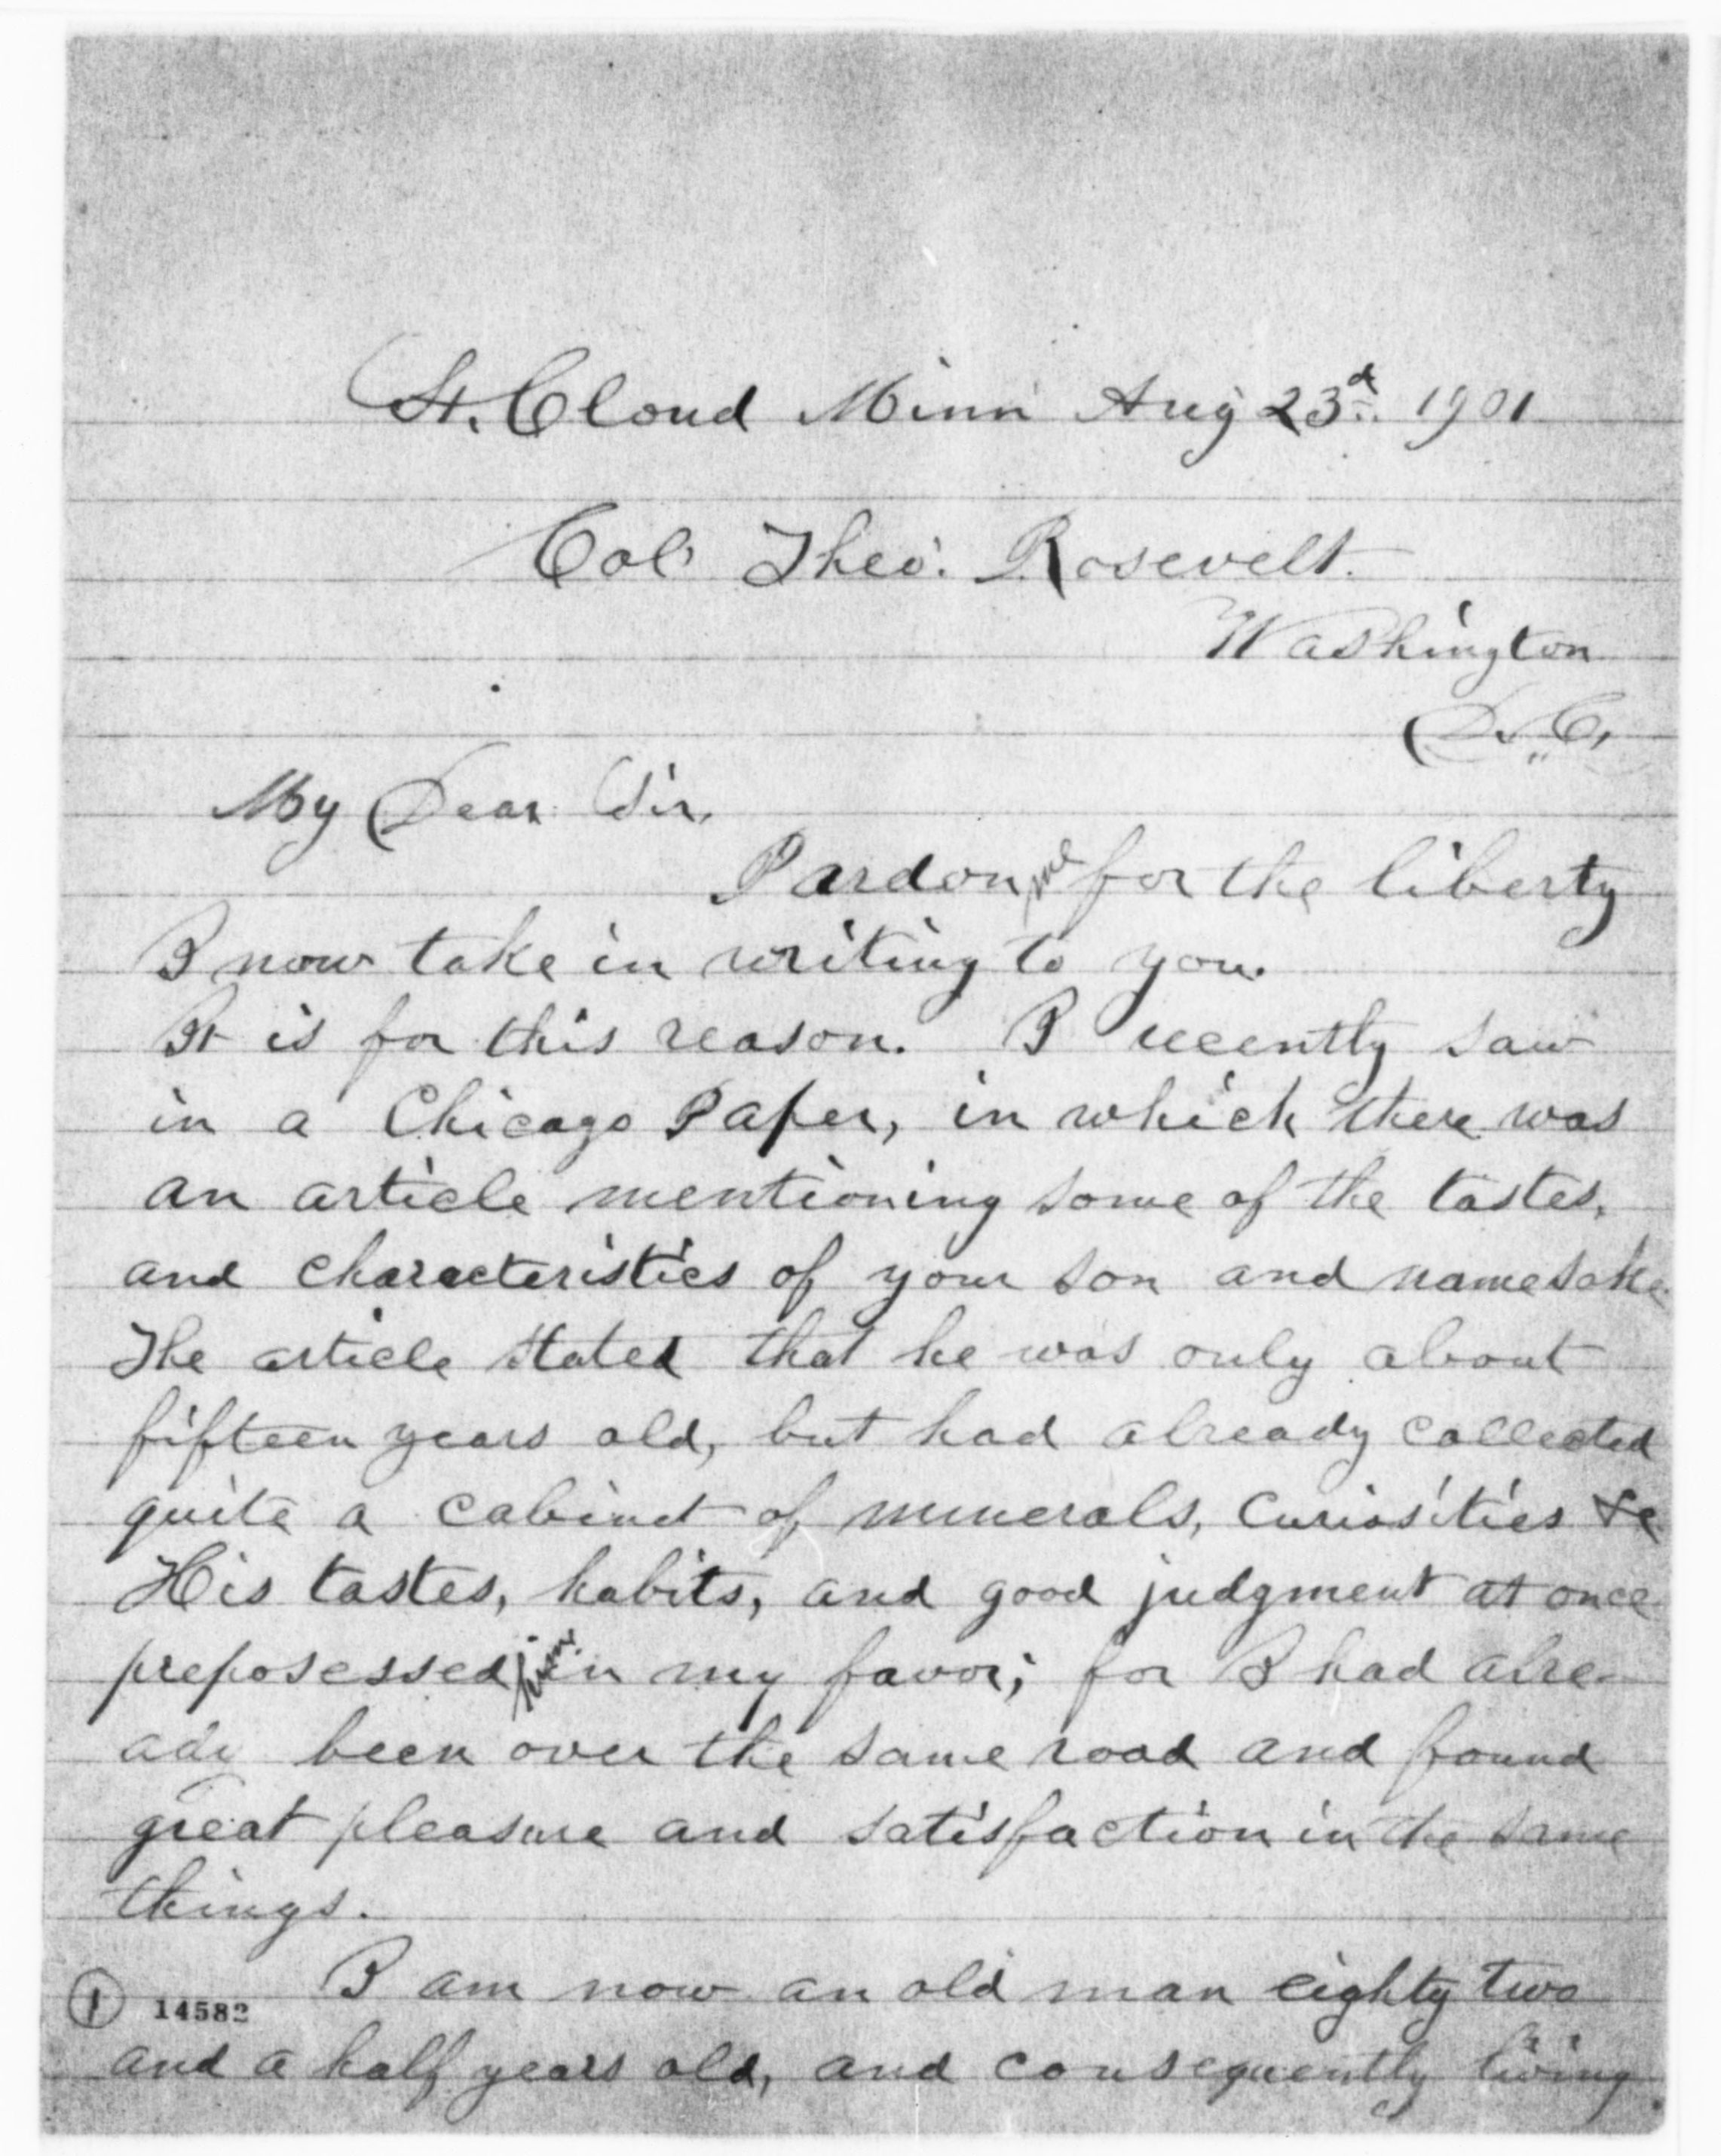 St. Cloud Minn Aug 23d. 1901
Col. Theo. Rosevelt.
Washington
D.C.
My Dear Sir,
Pardon me for the liberty
I now take in writing to you.
It is for this reason. I recently saw
in a Chicago Paper, in which there was
an article mentioning some of the tastes,
and characteristics of your son and namesake.
The article stated that he was only about
fifteen years old, but had already collected
quite a cabinet of minerals, curiosities &c
His tastes, habits, and good judgment at once
preposessed him in my favor; for I had alre-
ady been over the same road and found
great pleasure and satisfaction in the same
things.
I am now an old man eighty two
1 14582
and a half years old, and consequently living